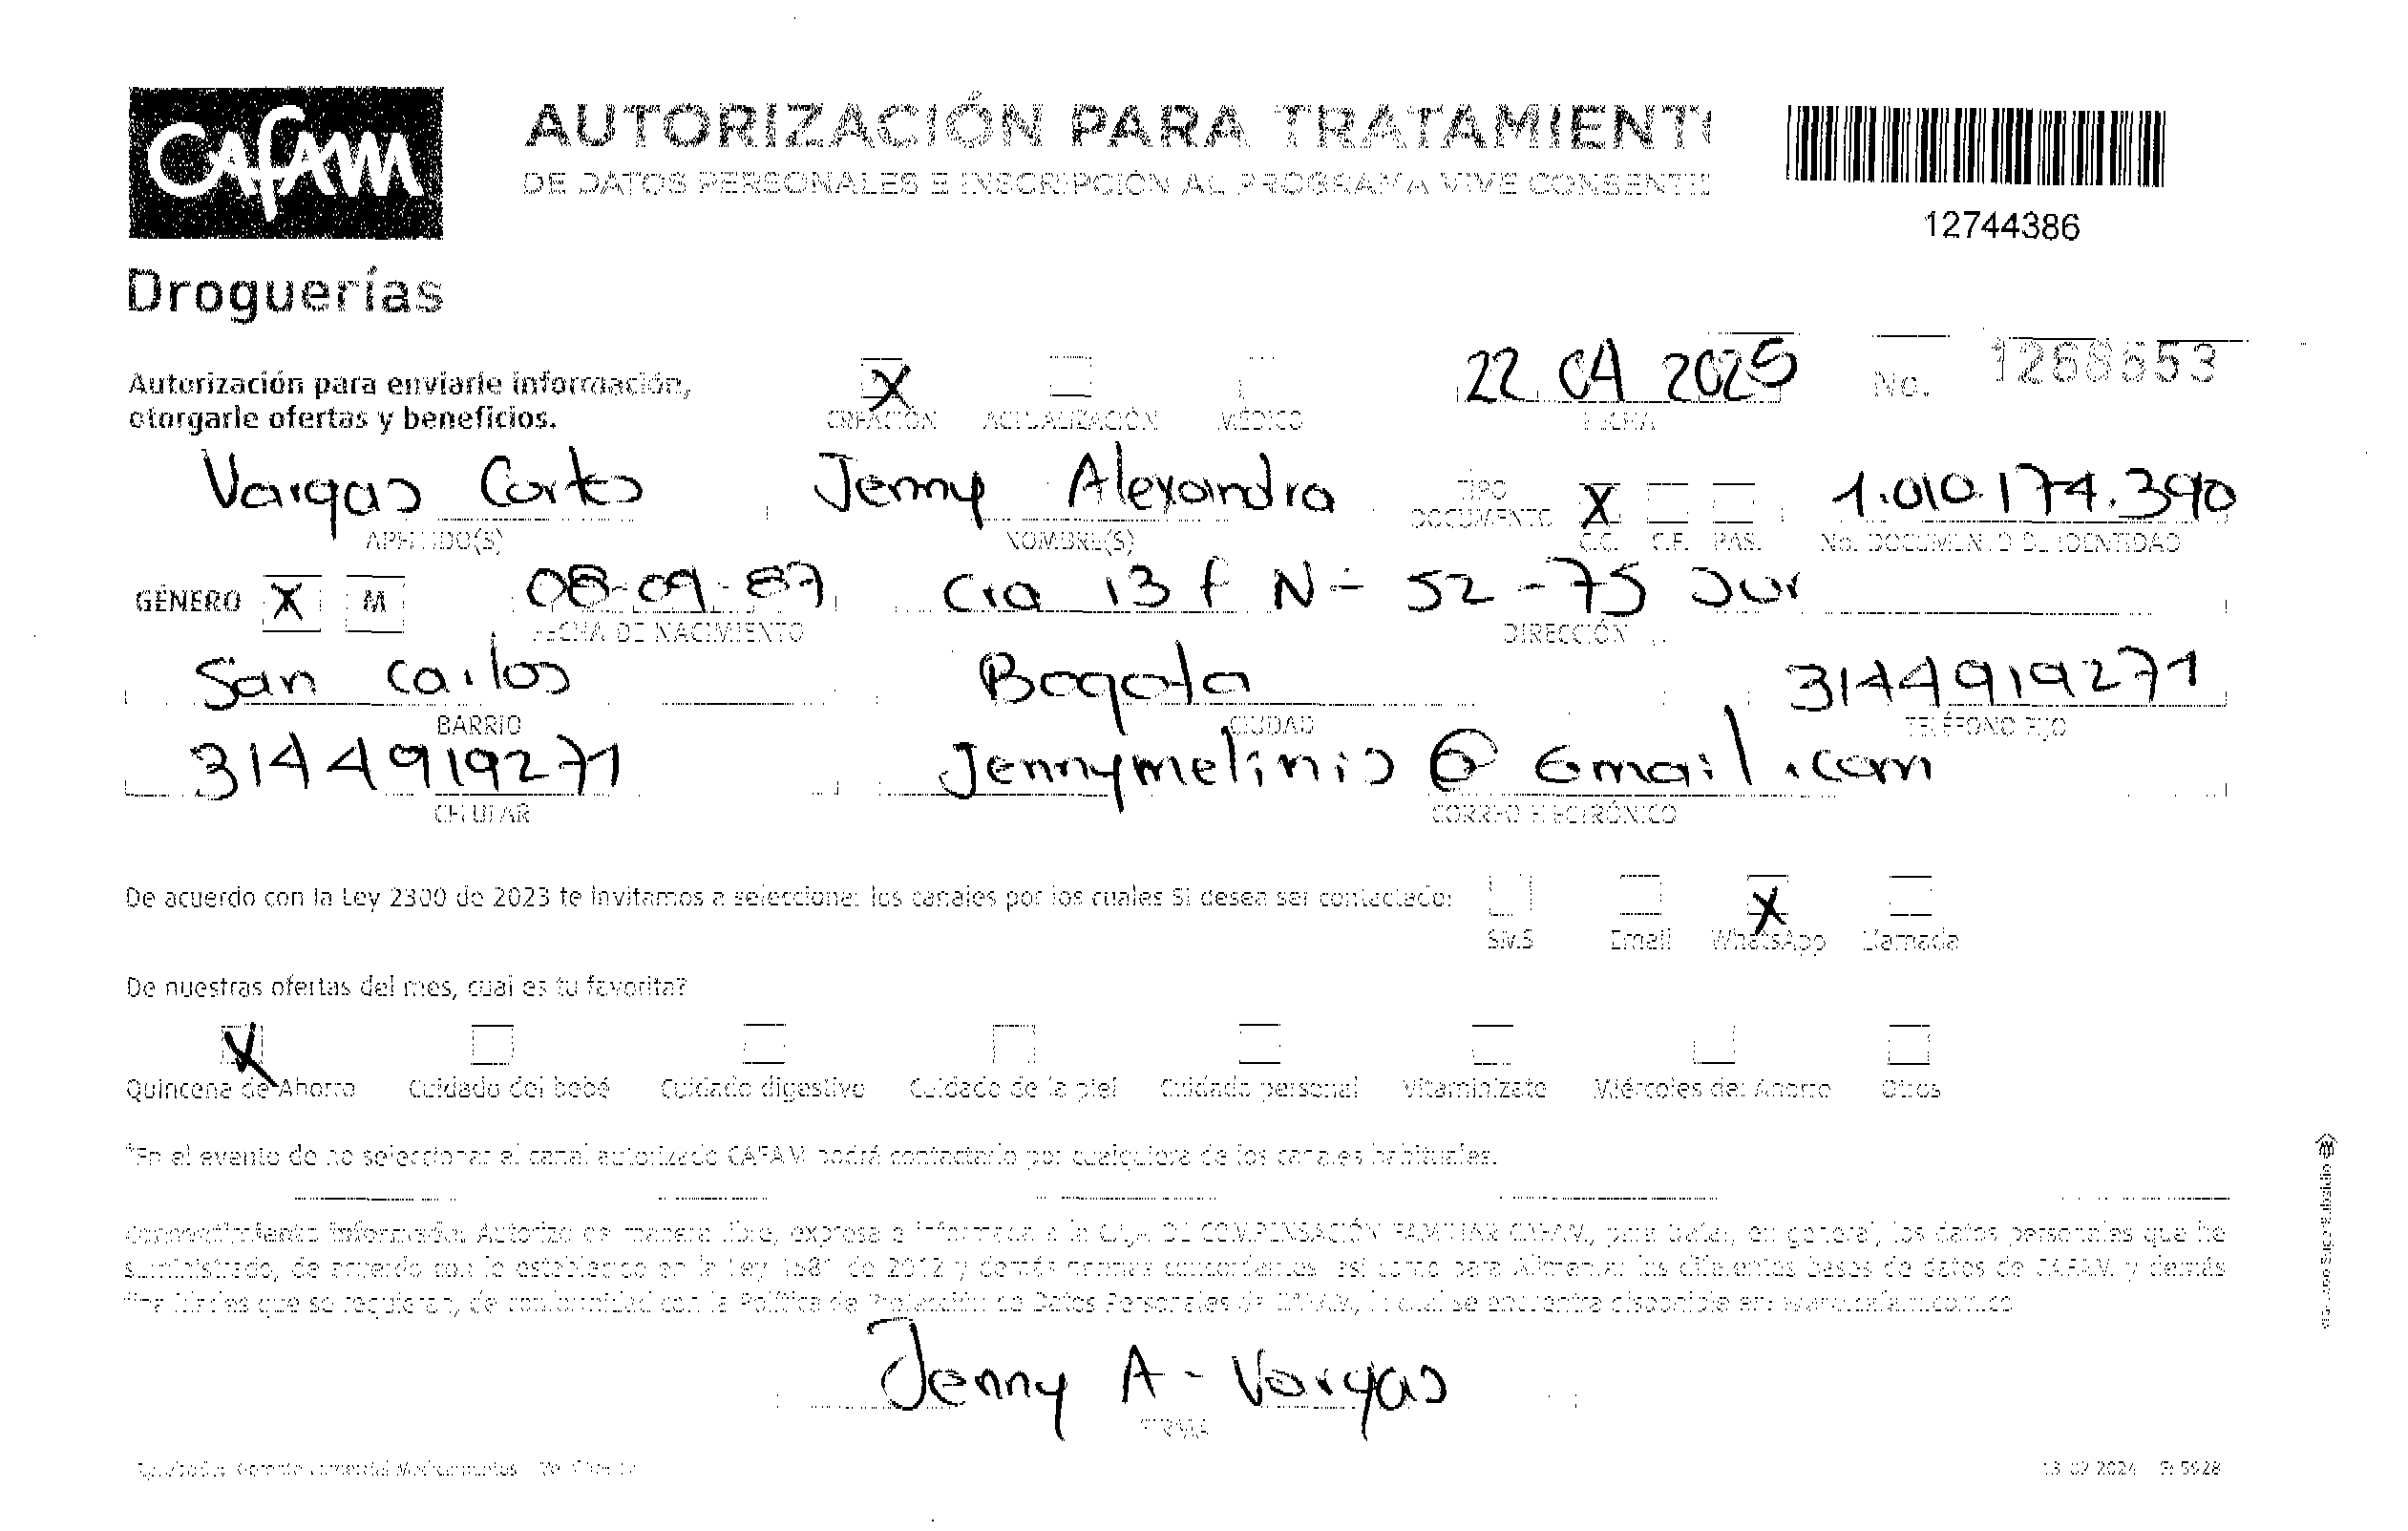 CAFAM
AUTORIZACIÓN PARA TRATAMIENT
DE DATOS PERSONALES E INSCRIPCIÓN AL PROGRAMA VIVE CONSENTI
12744386
Droguerías
Autorización para enviarle información,
otorgarle ofertas y beneficios.
X CREACIÓN ACTUALIZACIÓN MÉDICO
22 04 2025
FECHA
No. 1268653
Vargas Cortes Jenny Alexandra TIPO DOCUMENTO X 1.010.174.390
APELLIDO(S) NOMBRE(S) C.C. C.E. PAS. No. DOCUMENTO DE IDENTIDAD
GÉNERO X M 08-09-87 Cra 13 f N- 52-75 Sur
FECHA DE NACIMIENTO DIRECCIÓN
San Carlos Bogota 3144919271
BARRIO CIUDAD TELÉFONO FIJO
3144919271 Jennymelinis@Gmail.com
CELULAR CORREO ELECTRÓNICO
De acuerdo con la Ley 2300 de 2023 te invitamos a seleccionar los canales por los cuales SI desea ser contactado: X
SMS Email WhatsApp Llamada
De nuestras ofertas del mes, cual es tu favorita?
X
Quincena de Ahorro Cuidado del bebé Cuidado digestivo Cuidado de la piel Cuidado personal Vitaminízate Miércoles del Ahorro Otros
*En el evento de no seleccionar el canal autorizado CAFAM podrá contactarlo por cualquiera de los canales habituales.
Consentimiento informado: Autorizo de manera libre, expresa e informada a la CAJA DE COMPENSACIÓN FAMILIAR CAFAM, para tratar, en general, los datos personales que he
suministrado, de acuerdo con lo establecido en la Ley 1581 de 2012 y demás normas concordantes, así como para Alimentar las diferentes bases de datos de CAFAM y demás
finalidades que se requieran, de conformidad con la Política de Protección de Datos Personales de CAFAM, la cual se encuentra disponible en: www.cafam.com.co
Jenny A - Vargas
FIRMA
13-02-2024